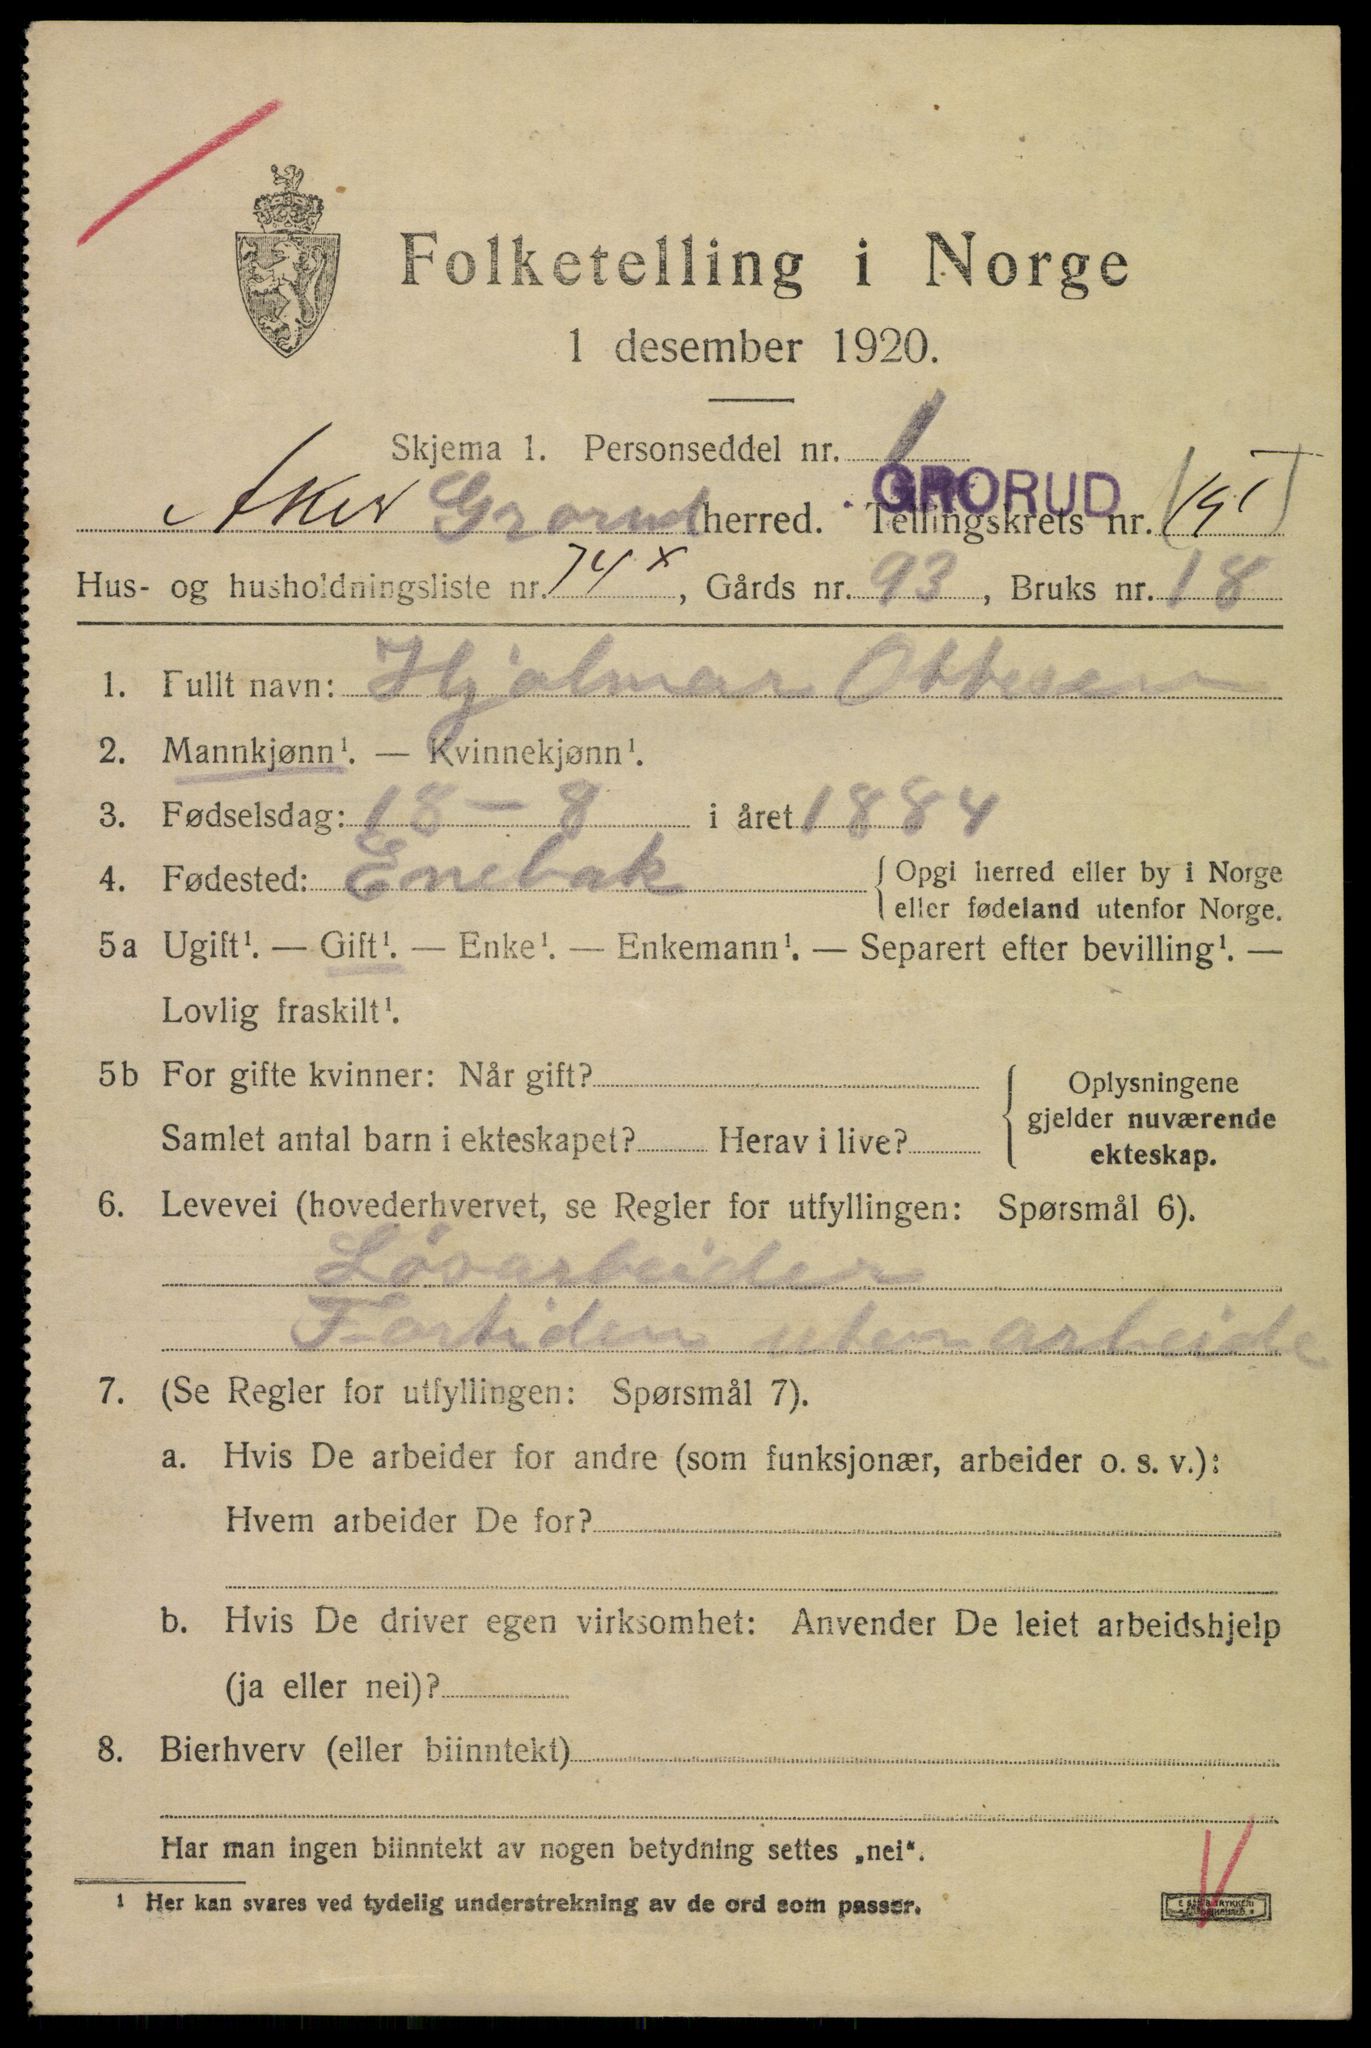 Folketelling i Norge
1 desember 1920.
Skjema 1. Personseddel nr. 1
GRORUD
Aker Grorud herred. Tellingskrets nr. (19 I)
Hus- og husholdningsliste nr. 74 x, Gårds nr. 93, Bruks nr. 18
1. Fullt navn: Hjalmar Ottesen
2. Mannkjønn¹. — Kvinnekjønn¹.
3. Fødselsdag: 18 – 8 i året 1884
4. Fødested: Enebak {Opgi herred eller by i Norge
eller fødeland utenfor Norge.
5a Ugift¹. — Gift¹. — Enke¹. — Enkemann¹. — Separert efter bevilling¹. —
Lovlig fraskilt¹.
5b For gifte kvinner: Når gift?
Samlet antal barn i ekteskapet? Herav i live?
{Oplysningene
gjelder nuværende
ekteskap.
6. Levevei (hovederhvervet, se Regler for utfyllingen: Spørsmål 6).
Løsarbeider
Fortiden uten arbeide
7. (Se Regler for utfyllingen: Spørsmål 7).
a. Hvis De arbeider for andre (som funksjonær, arbeider o. s. v.):
Hvem arbeider De for?
b. Hvis De driver egen virksomhet: Anvender De leiet arbeidshjelp
(ja eller nei)?
8. Bierhverv (eller biinntekt)
Har man ingen biinntekt av nogen betydning settes „nei“.
¹ Her kan svares ved tydelig understrekning av de ord som passer.